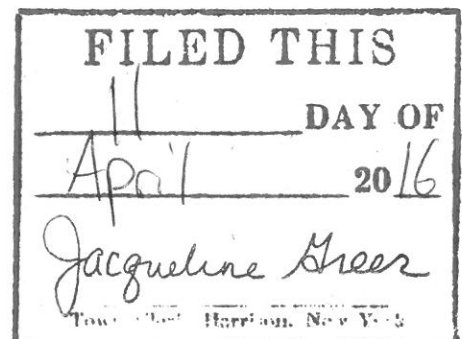 FILED THIS
11 DAY OF
April 2016
Jacqueline Greer
Town Clerk Harrison, New York